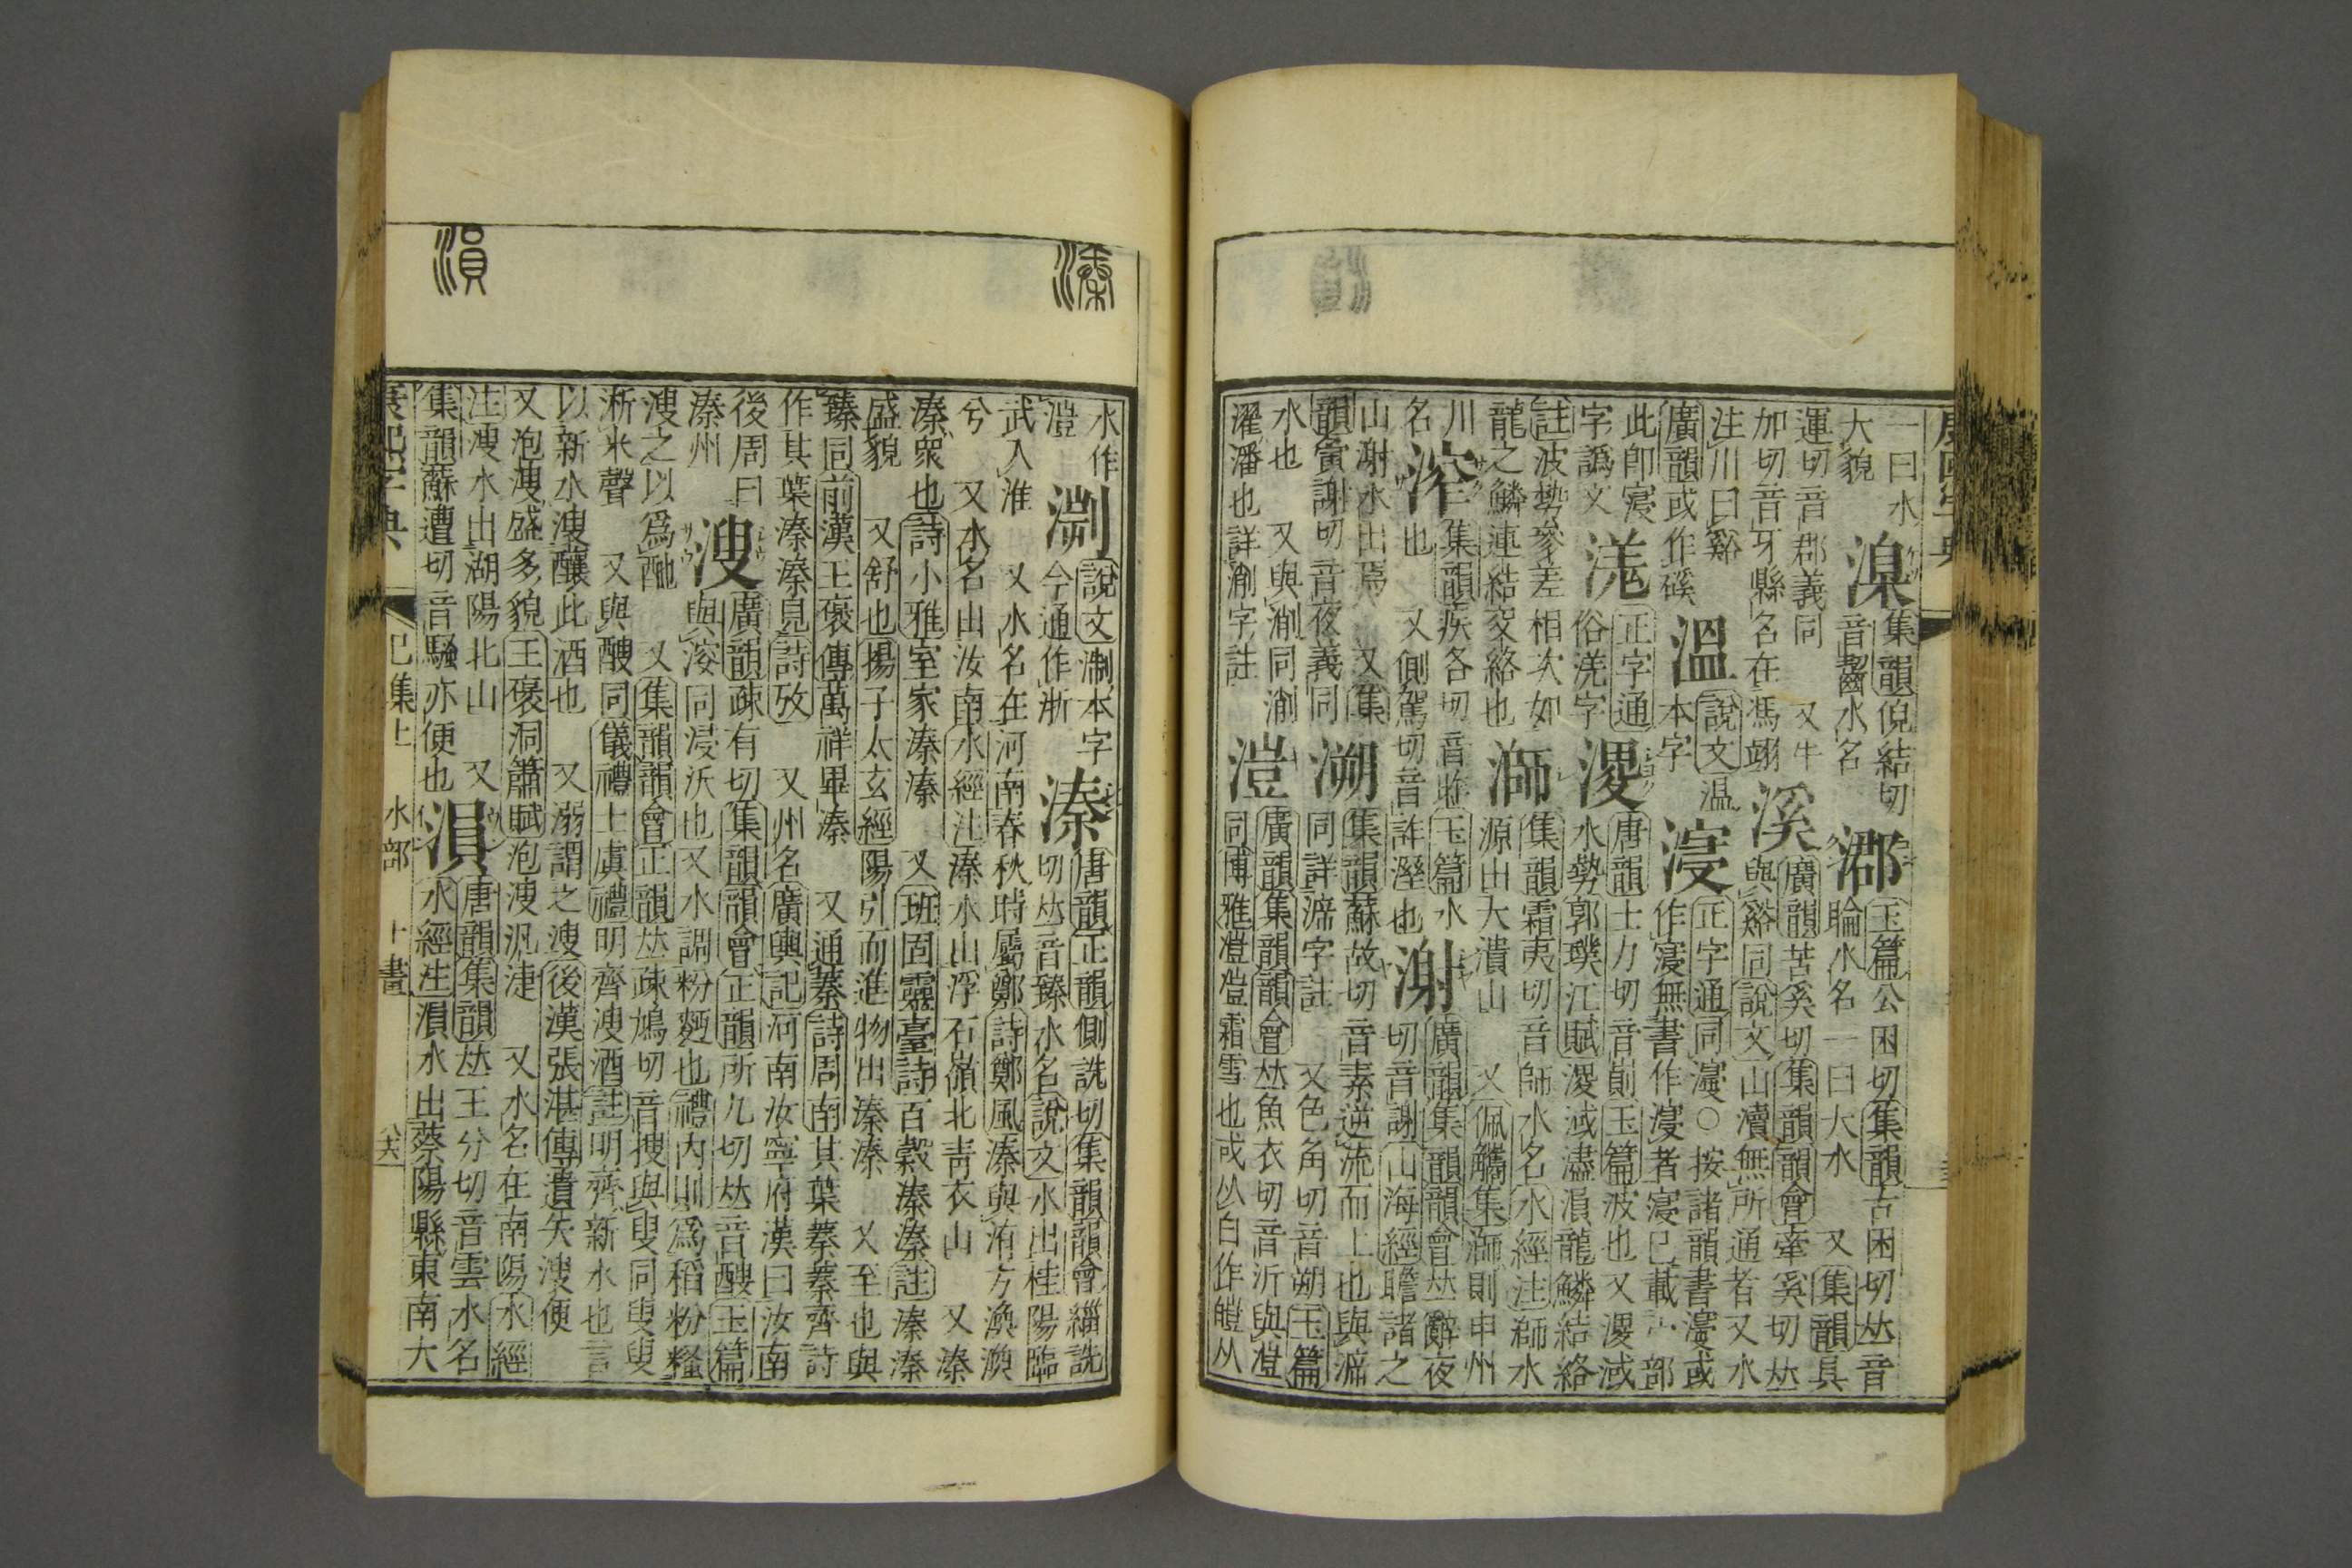 一曰水大貌
集韻倪結切音齧水名
玉篇公困切集韻古困切𠀤音睔水名一曰大水 又集韻具運切音郡義同 又牛加切音牙縣名在馮翊
溪 廣韻苦奚切集韻韻會牽奚切𠀤與谿同說文山瀆無所通者又水注川曰谿 廣韻或作磎
溫 說文温本字
正字通同濅○按諸韻書濅或作寖無書作者寖已載宀部此卽寖字譌文
正字通俗洸字
溭 唐韻士力切音崱玉篇波也又溭淢水勢郭璞江賦溭淢濜溳龍鱗結絡註波勢參差相次如龍之鱗連結交絡也
溮 集韻霜夷切音師水名水經注溮水源出大潰山 又佩觿集溮則申州川名
集韻疾各切音昨玉篇水名也 又側駕切音詐溼也
㴬 廣韻集韻韻會𠀤辭夜切音謝山海經瞻諸之山㴬水出焉 又集韻寅謝切音夜義同
溯 集韻蘇故切音素逆流而上也與㴑同詳㴑字註 又色角切音朔玉篇水也
溰 廣韻集韻韻會𠀤魚衣切音沂與凒同博雅溰溰霜雪也或从白作皚从水作溰
說文淛本字今通作浙
溱
溱 唐韻正韻側詵切集韻韻會緇詵切𠀤音臻水名說文水出桂陽臨武入淮 又水名在河南春秋時屬鄭詩鄭風溱與洧方渙渙兮 又水名出汝南水經注溱水山浮石嶺北靑衣山 又溱溱衆也詩小雅室家溱溱 又班固靈臺詩百穀溱溱註溱溱盛貌 又舒也揚子太玄經陽引而進物出溱溱 又至也與臻同前漢王襃傳萬祥畢溱 又通蓁詩周南其葉蓁蓁齊詩作其葉溱溱見詩攷 又州名廣輿記河南汝寧府漢曰汝南後周曰溱州
溲 廣韻疎有切集韻韻會正韻所九切𠀤音醙玉篇與滫同浸沃也又水調粉麪也禮內則爲稻粉糔溲之以爲酏 又集韻韻會正韻𠀤疎鳩切音搜與叟同叟叟淅米聲 又與醙同儀禮士虞禮明齊溲酒註明齊新水也言以新水溲釀此酒也 又溺謂之溲後漢張湛傳遺矢溲便 又泡溲盛多貌王襃洞簫賦泡溲汎㴜 又水名在南陽水經注溲水出湖陽北山 又集韻蘇遭切音騷亦便也
溳
溳 唐韻集韻𠀤王分切音雲水名水經注溳水出蔡陽縣東南大
康熙字典 巳集上 水部 十畫 六八